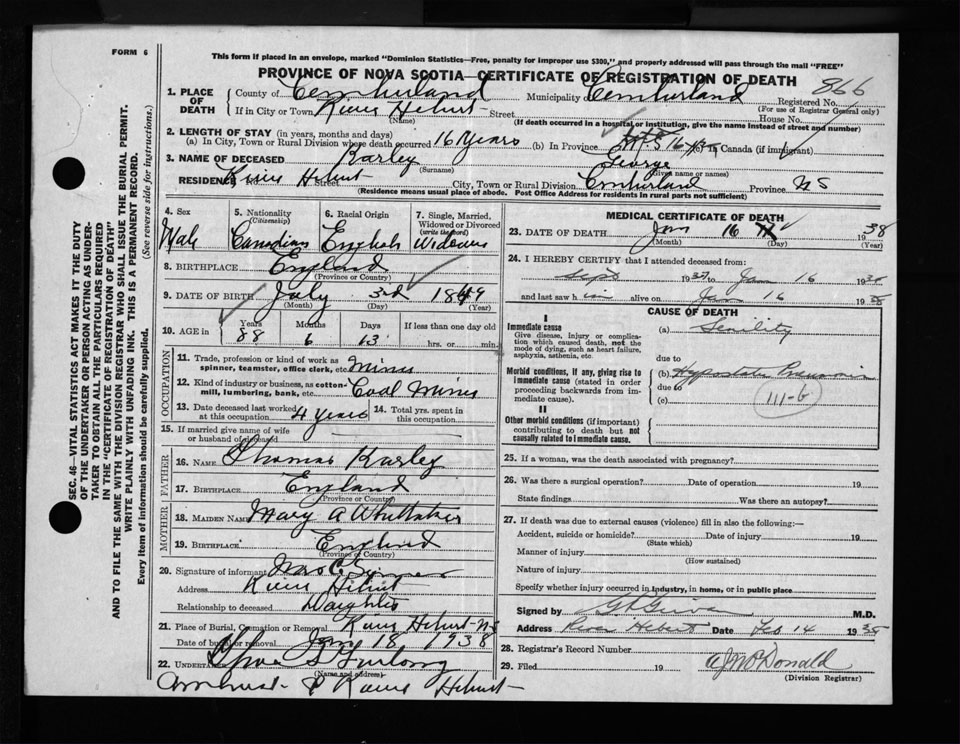 FORM 6
This form if placed in an envelope, marked "Dominion Statistics—Free, penalty for improper use $300," and properly addressed will pass through the mail "FREE"
PROVINCE OF NOVA SCOTIA—CERTIFICATE OF REGISTRATION OF DEATH
866
1. PLACE OF DEATH
County of Cumberland Municipality of Cumberland Registered No.
(For use of Registrar General only)
If in City or Town River Hebert Street House No.
(Name) (If death occurred in a hospital or institution, give the name instead of street and number)
2. LENGTH OF STAY (in years, months and days)
(a) In City, Town or Rural Division where death occurred 16 Years (b) In Province (c) In Canada (if immigrant)
3. NAME OF DECEASED Karley George
(Surname) (Given name or names)
RESIDENCE River Hebert Street City, Town or Rural Division Cumberland Province NS
(Residence means usual place of abode. Post Office Address for residents in rural parts not sufficient)
SEC. 46—VITAL STATISTICS ACT MAKES IT THE DUTY
OF THE UNDERTAKER OR PERSON ACTING AS UNDER-
TAKER TO OBTAIN ALL THE PARTICULARS REQUIRED
IN THE "CERTIFICATE OF REGISTRATION OF DEATH"
AND TO FILE THE SAME WITH THE DIVISION REGISTRAR WHO SHALL ISSUE THE BURIAL PERMIT.
WRITE PLAINLY WITH UNFADING INK. THIS IS A PERMANENT RECORD.
Every item of information should be carefully supplied. (See reverse side for instructions.)
4. Sex 5. Nationality (Citizenship) 6. Racial Origin 7. Single, Married, Widowed or Divorced (write the word)
Male Canadian English Widower
8. BIRTHPLACE England
(Province or Country)
9. DATE OF BIRTH July 3rd 1849
(Month) (Day) (Year)
10. AGE in Years Months Days If less than one day old
88 6 13 hrs. or min.
OCCUPATION
11. Trade, profession or kind of work as spinner, teamster, office clerk, etc. Miner
12. Kind of industry or business, as cotton-mill, lumbering, bank, etc. Coal Mines
13. Date deceased last worked at this occupation 4 years 14. Total yrs. spent in this occupation
15. If married give name of wife or husband of deceased
FATHER
16. NAME Thomas Karley
17. BIRTHPLACE England
(Province or Country)
MOTHER
18. MAIDEN NAME Mary A Whittaker
19. BIRTHPLACE England
(Province or Country)
20. Signature of informant Mrs C.
Address River Hebert
Relationship to deceased Daughter
21. Place of Burial, Cremation or Removal River Hebert NS
Date of burial or removal Jan 18 1938
22. UNDERTAKER Furlong
(Name and address)
Amherst & River Hebert
MEDICAL CERTIFICATE OF DEATH
23. DATE OF DEATH Jan 16 1938
(Month) (Day) (Year)
24. I HEREBY CERTIFY that I attended deceased from:
Sept 1937 to Jan 16 1938
and last saw him alive on Jan 16 1938
CAUSE OF DEATH
I
Immediate cause
Give disease, injury or complication which caused death, not the mode of dying, such as heart failure, asphyxia, asthenia, etc.
(a) Senility
due to
Morbid conditions, if any, giving rise to immediate cause (stated in order proceeding backwards from immediate cause).
(b) Hypostatic Pneumonia
due to
(c) 111-b
II
Other morbid conditions (if important) contributing to death but not causally related to immediate cause.
25. If a woman, was the death associated with pregnancy?
26. Was there a surgical operation? Date of operation 19
State findings Was there an autopsy?
27. If death was due to external causes (violence) fill in also the following:—
Accident, suicide or homicide? Date of injury 19
(State which)
Manner of injury
(How sustained)
Nature of injury
Specify whether injury occurred in Industry, in home, or in public place
Signed by M.D.
Address River Hebert Date Feb 14 1938
28. Registrar's Record Number
29. Filed 19 AJ McDonald
(Division Registrar)